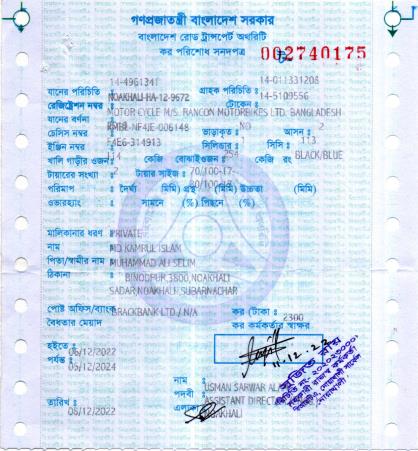 গণপ্রজাতন্ত্রী বাংলাদেশ সরকার
বাংলাদেশ রোড ট্রান্সপোর্ট অথরিটি
কর পরিশোধ সনদপত্র
002740175
যানের পরিচিতি : 14-4961341 গ্রাহক পরিচিতি : 14-011331208
রেজিস্ট্রেশন নম্বর NOAKHALI-HA-12-9672 টোকেন : 14-5109556
যানের বর্ণনা MOTOR CYCLE M/S. RANCON MOTORBIKES LTD. BANGLADESH
চেসিস নম্বর NF4JE-006148 ভাড়াকৃত : NO আসন : 2
ইঞ্জিন নম্বর 314913 সিলিন্ডার : 1 সিসি : 113
খালি গাড়ীর ওজন : 114 কেজি বোঝাইওজন : 254 কেজি রং BLACK/BLUE
টায়ারের সংখ্যা : 2 টায়ার সাইজ : 70/100-17
পরিমাপ : দৈর্ঘ্য (মিমি) প্রস্থ (মিমি) উচ্চতা (মিমি)
ওভারহ্যাং : সামনে (%) পিছনে (%)
মালিকানার ধরণ : PRIVATE
নাম : MD KAMRUL ISLAM
পিতা/স্বামীর নাম : MUHAMMAD ALI SELIM
ঠিকানা : BINODPUR,3800,NOAKHALI
SADAR,NOAKHALI,SUBARNACHAR
পোষ্ট অফিস/ব্যাংক : BRACKBANK LTD / N/A কর (টাকা : 2300
বৈধতার মেয়াদ কর কর্মকর্তার স্বাক্ষর
হইতে : 06/12/2022
পর্যন্ত : 05/12/2024
11.12.22
নাম : USMAN SARWAR
পদবী : ASSISTANT
তারিখ : 06/12/2022 এলাকা NOAKHALI